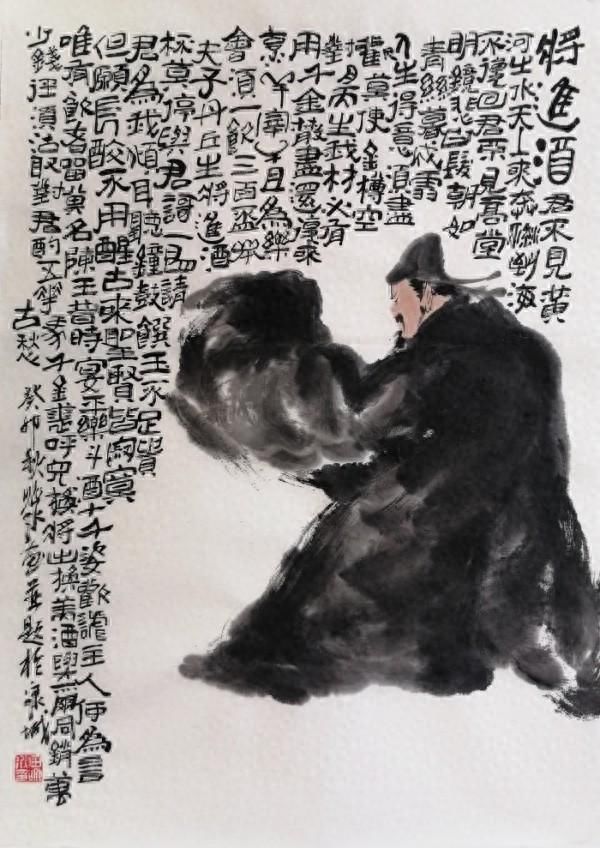 將進酒 君不見黃
河之水天上來奔流到海
不復回君不見高堂
明鏡悲白髮朝如
青絲暮成雪
人生得意須盡
歡莫使金樽空
對月天生我材必有
用千金散盡還復來
烹羊宰牛且為樂
會須一飲三百盃岑
夫子丹丘生將進酒
杯莫停與君謌一曲請
君為我傾耳聽鐘鼓饌玉不足貴
但願長醉不用醒古來聖賢皆寂寞
唯有飲者留其名陳王昔時宴平樂斗酒十千恣歡謔主人何為言
少錢徑須沽取對君酌五花馬千金裘呼兒將出換美酒與爾同銷萬
古愁 癸卯秋 畫並題於泉城